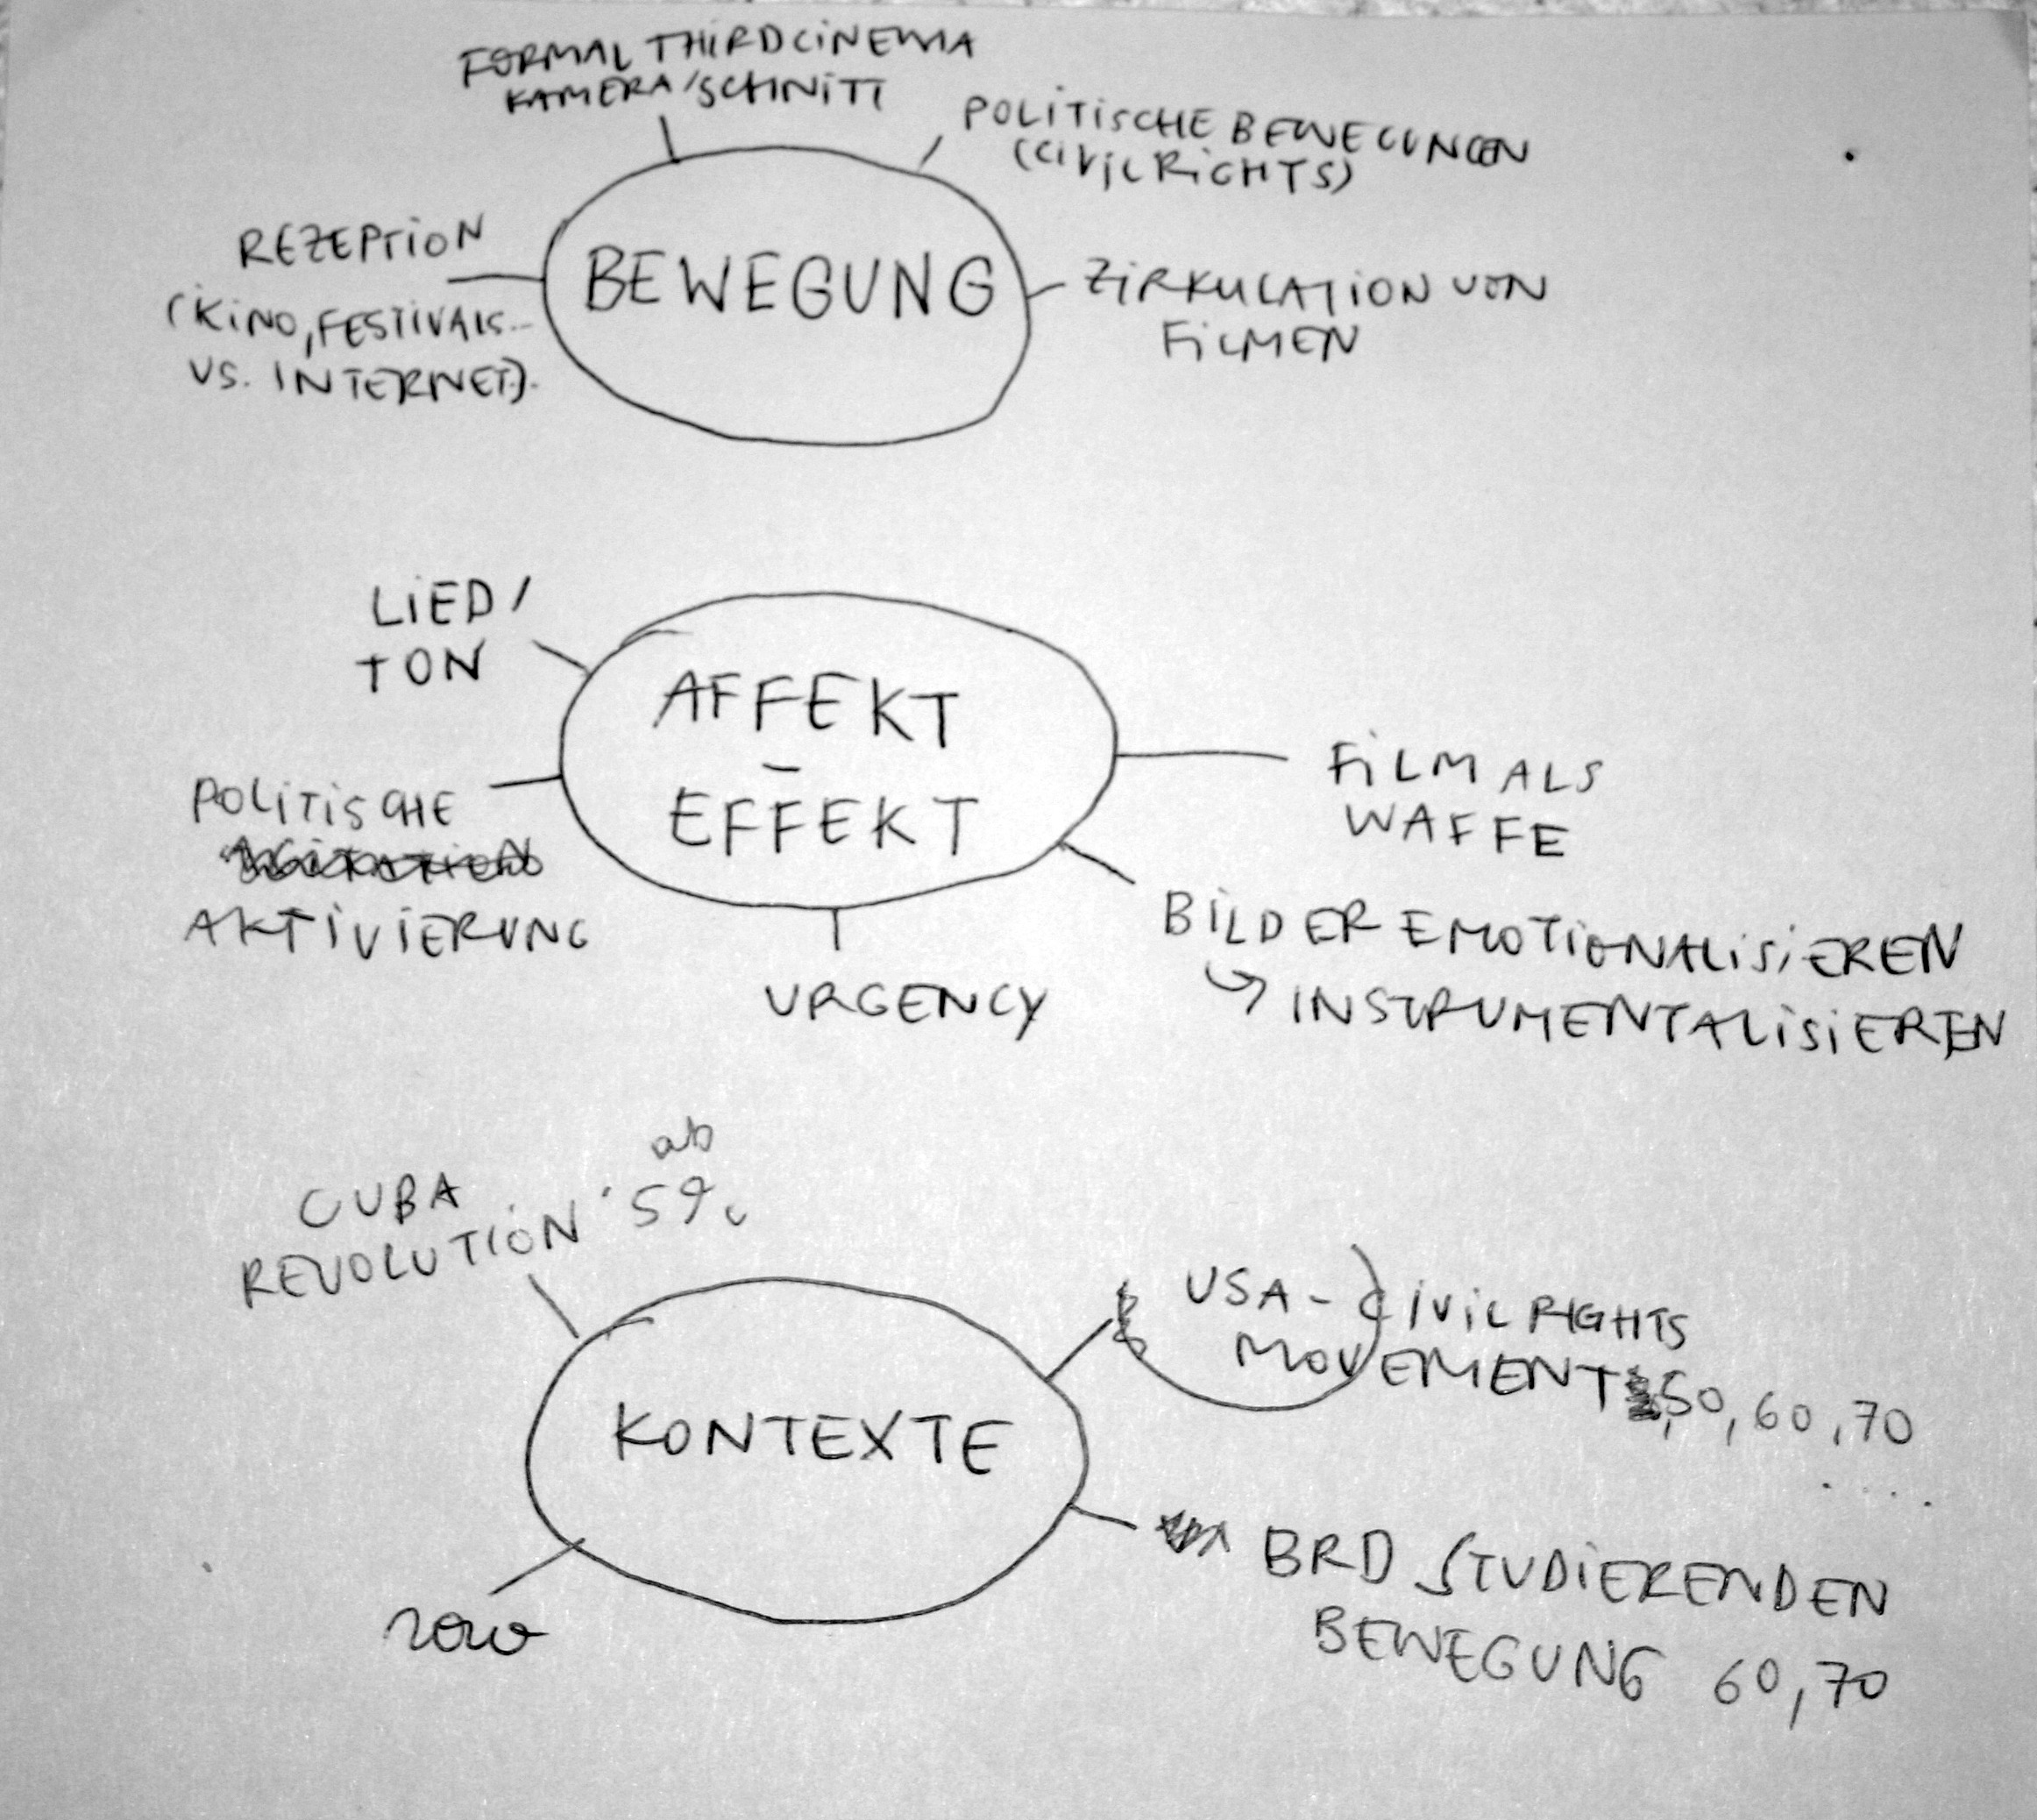 FORMAL THIRD CINEMA
KAMERA/SCHNITT
POLITISCHE BEWEGUNGEN
(CIVIL RIGHTS)
REZEPTION
(KINO, FESTIVALS...
VS. INTERNET).
BEWEGUNG
ZIRKULATION VON
FILMEN
LIED/
TON
AFFEKT
–
EFFEKT
POLITISCHE
AGITATION
AKTIVIERUNG
URGENCY
FILM ALS
WAFFE
BILDER EMOTIONALISIEREN
↪ INSTRUMENTALISIEREN
CUBA
ab
REVOLUTION '59
USA - CIVIL RIGHTS
MOVEMENT 50, 60, 70
....
KONTEXTE
now
BRD STUDIERENDEN
BEWEGUNG 60, 70